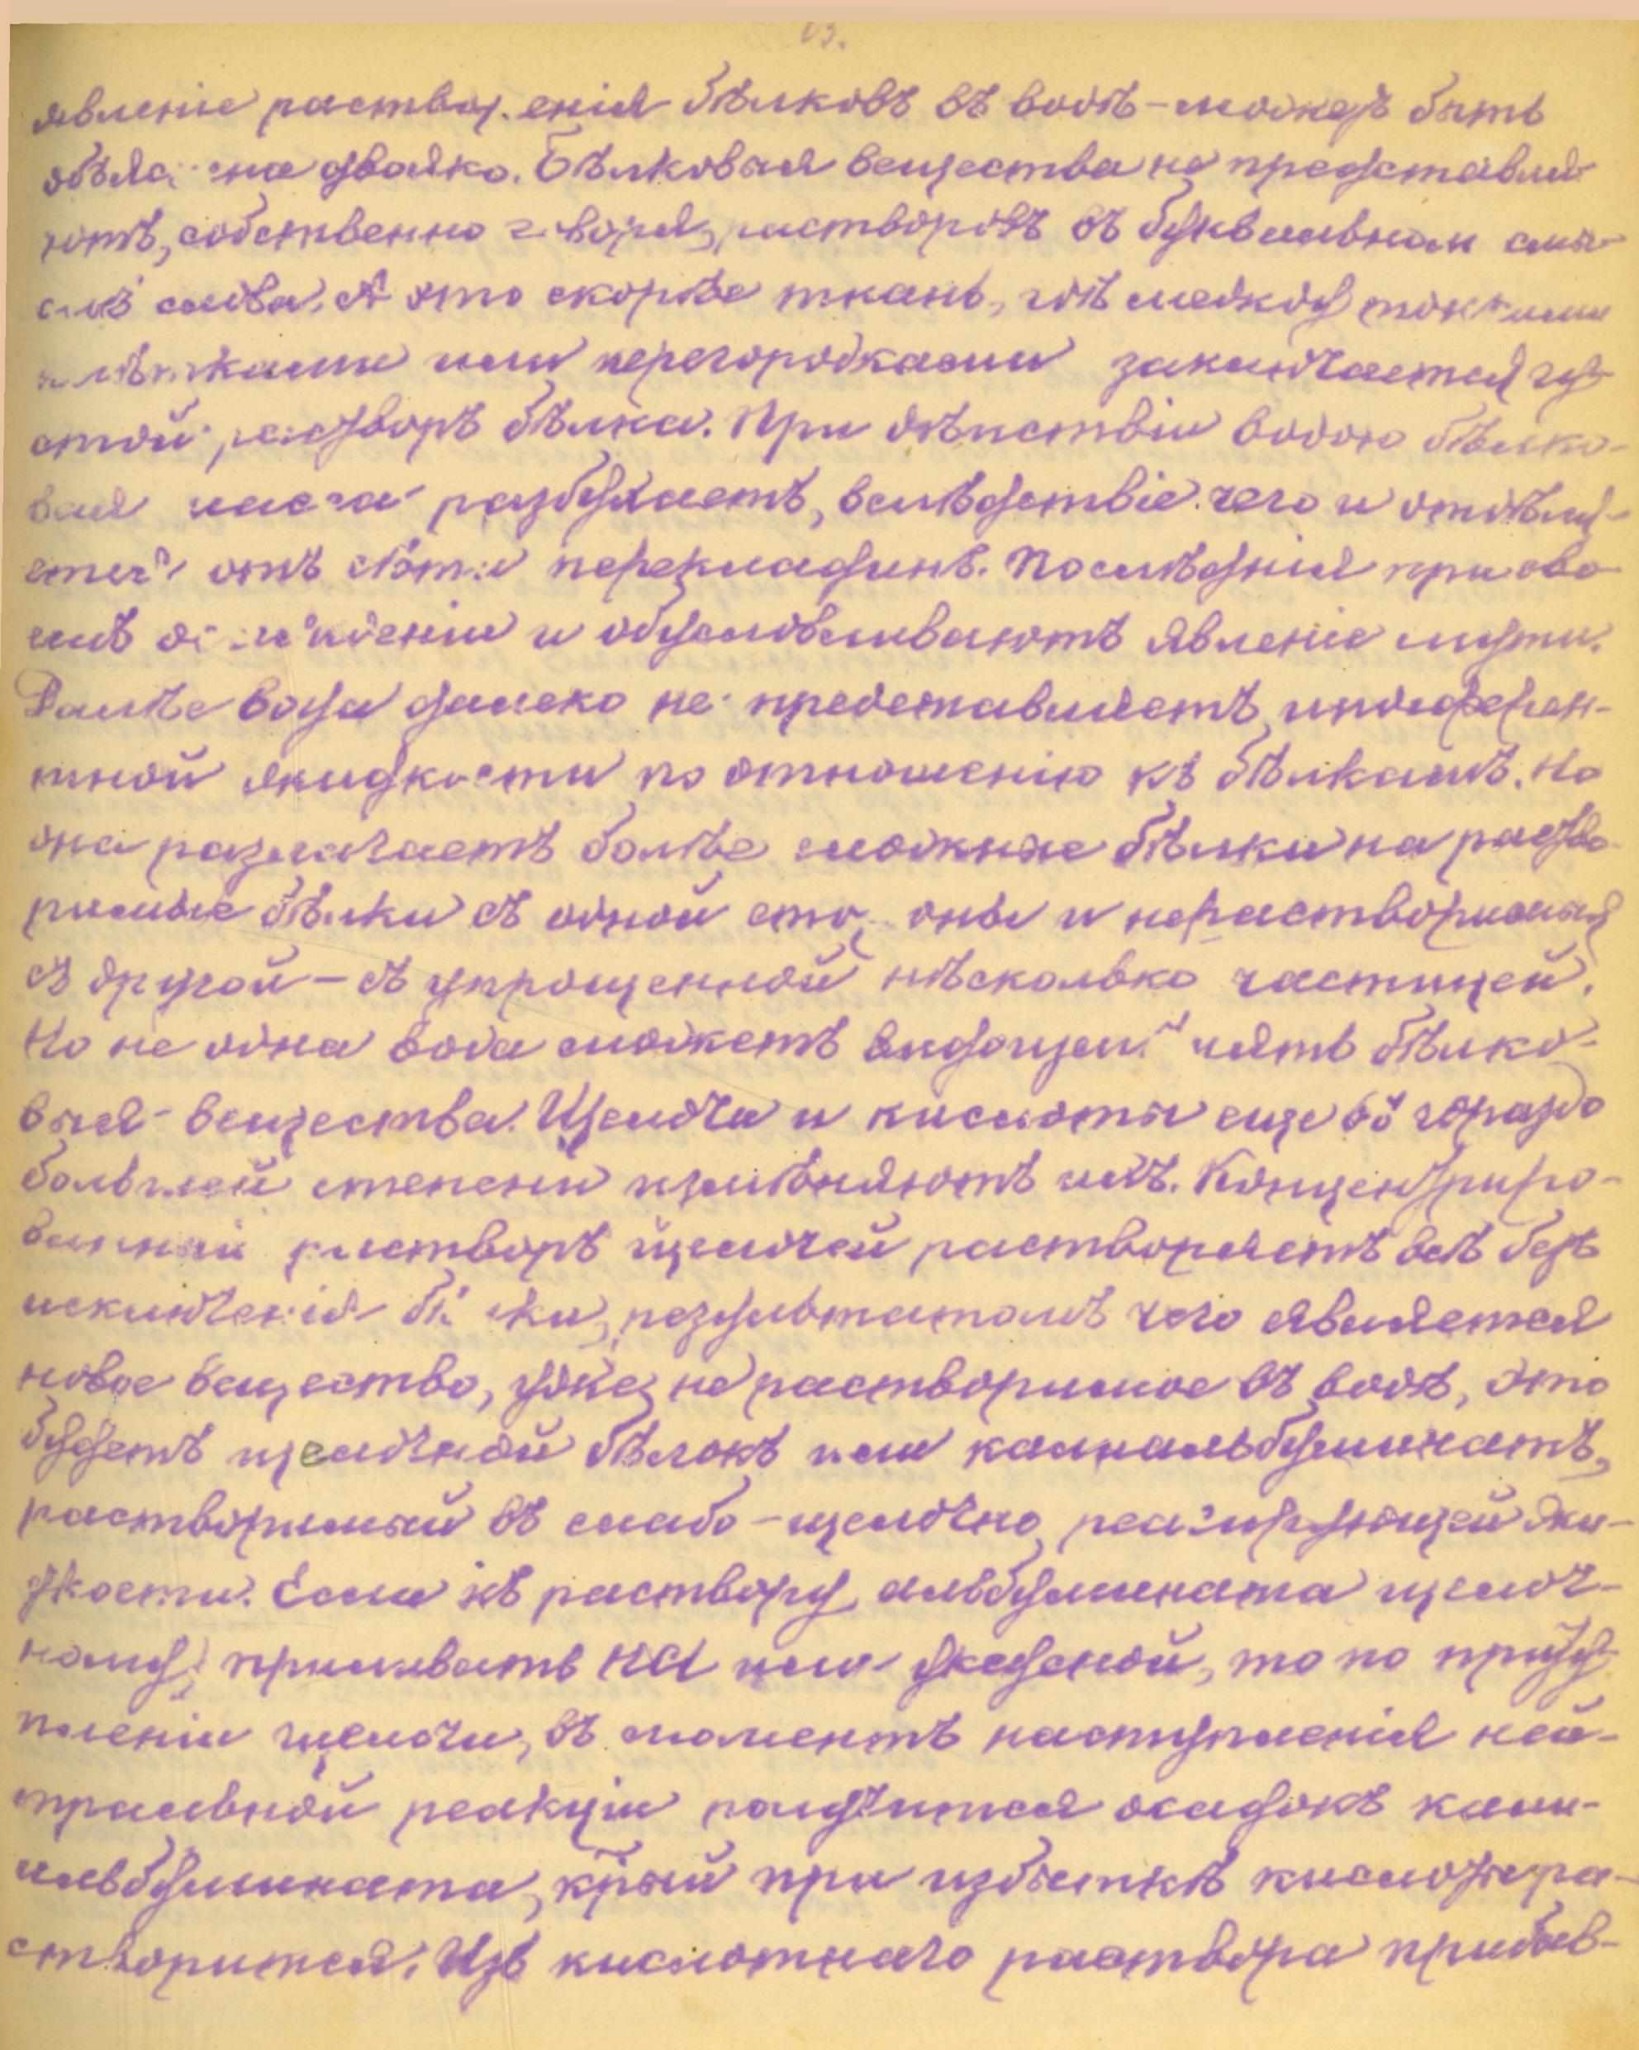 явленіе раствор.енія бѣлковъ въ водѣ – можетъ быть
объяснена двояко. Бѣлковыя вещества не представля-
ютъ, собственно говоря, растворовъ въ буквальном смы-
слѣ слова. А это скорѣе ткань, гдѣ между тонкими
клѣтками или перегородками заключается гу-
стой растворъ бѣлка. При дѣйствіи водою бѣлко-
вая масса разбухаетъ, вслѣдствіе чего и отдѣля-
ется отъ сѣти перекладинъ. Послѣднія при ово
емъ осажденіи и обусловливаютъ явленіе мути.
Далѣе вода далеко не представляетъ индиферен-
тной жидкости по отношенію къ бѣлкамъ. Но
она разлагаетъ болѣе сложные бѣлки на раство-
римые бѣлки съ одной стороны и нерастворимыя
съ другой – съ упрощенной нѣсколько частицей.
Но не одна вода можетъ видоизмѣнять бѣлко-
выя вещества. Щелочи и кислоты еще въ гораздо
большей степени измѣняютъ ихъ. Концентриро-
ванный растворъ щелочей растворяетъ всѣ безъ
исключенія бѣлки, результатомъ чего является
новое вещество, уже не растворимое въ водѣ, это
будетъ щелочной бѣлокъ или калиальбуминатъ,
растворимый въ слабо – щелочно реагирующей жи-
дкости. Если къ раствору альбумината щелоч-
ному приливать HCl или уксусной, то по приту
пленіи щелочи, въ моментъ наступленія ней-
тральной реакціи получится осадокъ кали-
альбумината, к̃рый при избыткѣ кислоты ра-
створится. Изъ кислотнаго раствора прибав-